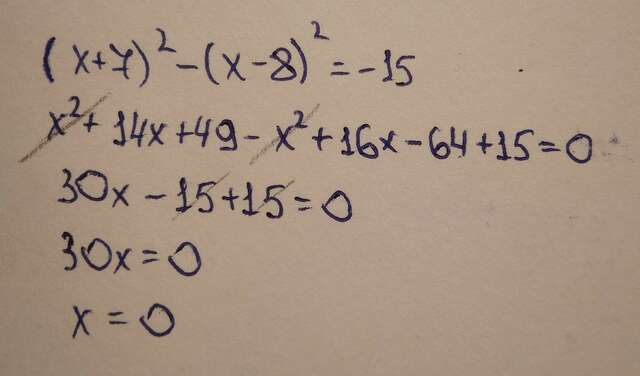 (x+7)² - (x-8)² = -15
x² + 14x + 49 - x² + 16x - 64 + 15 = 0
30x - 15 + 15 = 0
30x = 0
x = 0